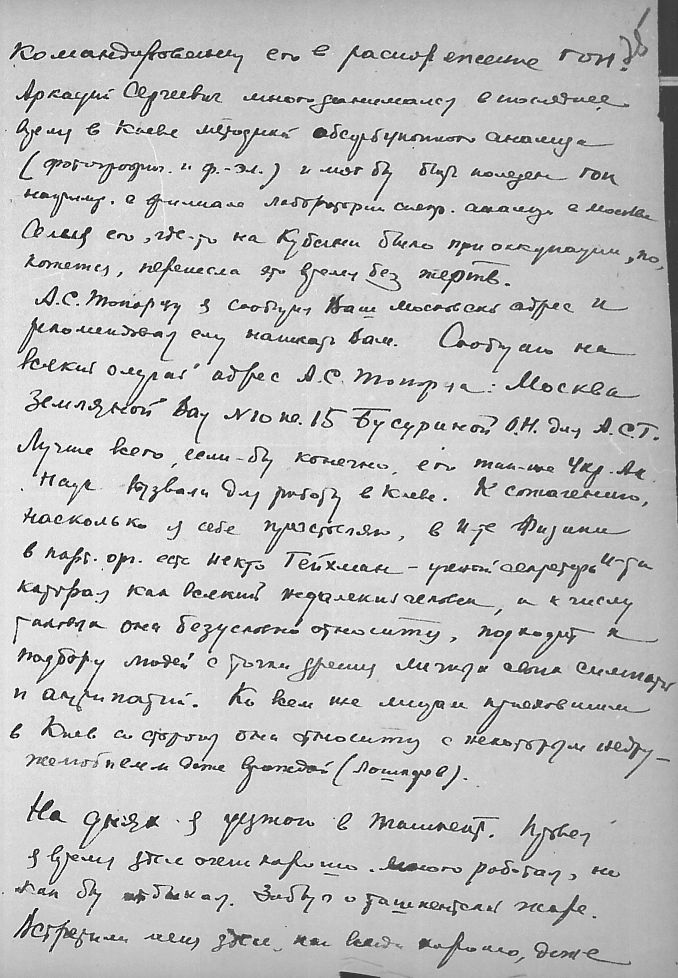 командированию его в распоряжение ГОИ.
Аркадий Сергеевич много занимался в последнее
время в Киеве методикой абсорбционного анализа
(фотографич. и ф.-эл.) и мог бы быть полезен ГОИ
например. в филиале лаборатории спектр. анализа в Москве
Семья его, где-то на Кубани была при оккупации, но,
кажется, перенесла это время без жертв.
А.С. Топорцу я сообщил Ваш московский адрес и
рекомендовал ему написать Вам. Сообщаю на
всякий случай адрес А.С. Топорца: Москва
Земляной Вал N10 кв. 15 Бусуриной О.Н. для А.С.Т.
Лучше всего, если-бы конечно, его Укр. Ак.
Наук вызвала для работы в Киеве. К сожалению,
насколько я себе представляю, в И-те Физики
в парт. орг. есть некто Гейхман – ученый секретарь И-та
которая как всякий недалекий человек, а к числу
таковых она безусловно относится, подходит к
подбору людей с точки зрения личных своих симпатий
и антипатий. Ко всем же лицам приехавшим
в Киев со стороны она относится с некоторым недру-
желюбием даже враждой (Лошкарев).
На днях я уезжаю в Ташкент. Провел
я время здесь очень хорошо. Много работал, но
как бы отдыхал. Забыл о ташкентской жаре.
Встретили меня здесь, как всегда хорошо, даже